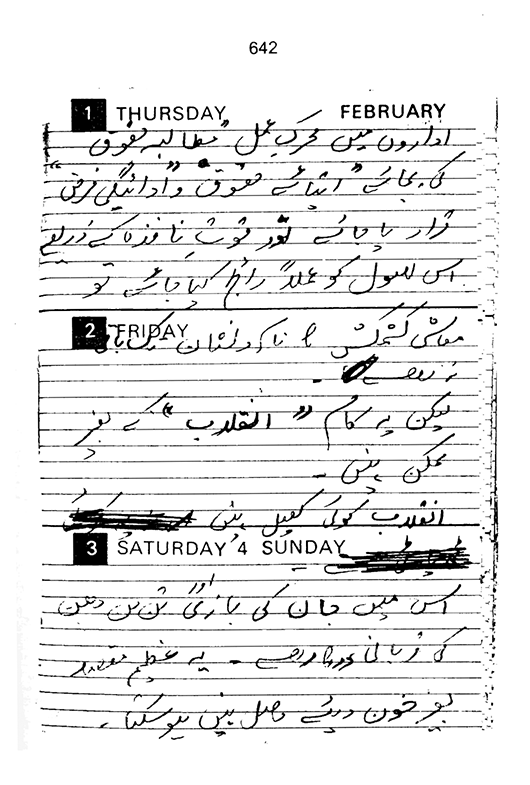 642
1 THURSDAY FEBRUARY
اداروں میں محرکِ عمل "مطالبہ حقوق
کی بجائے" ایتائے حقوق" و "ادائیگی فرض"
قرار پا جائے اور قوت نافذہ کے ذریعے
اس اصول کو عملاً رائج کیا جائے تو
2 FRIDAY
معاشی کشمکش کا نام و نشان تک باقی
نہ رہے ۔
لیکن یہ کام "انقلاب" کے بغیر
ممکن نہیں ۔
انقلاب کوئی کھیل نہیں
3 SATURDAY 4 SUNDAY
اس میں جان کی بازی اور تن من دھن
کی قربانی درکار ہے ۔ یہ عظیم مقصد
بغیر خون دیئے حاصل نہیں ہو سکتا ۔